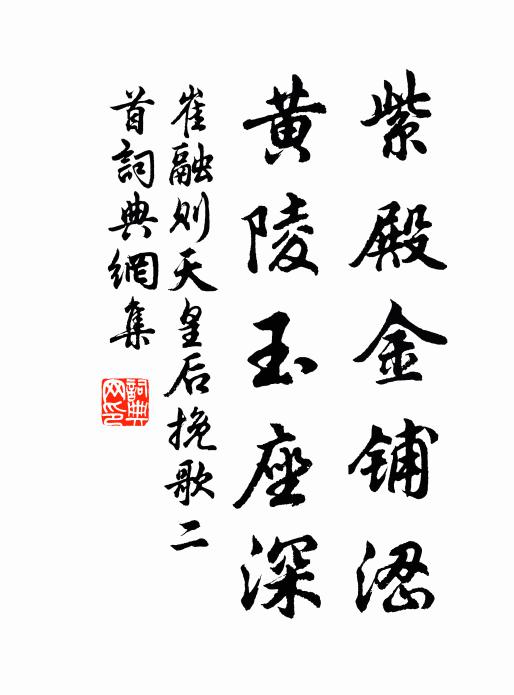 紫殿金铺涩
黄陵玉座深
崔融则天皇后挽歌二
首詞典網集
詞典網印